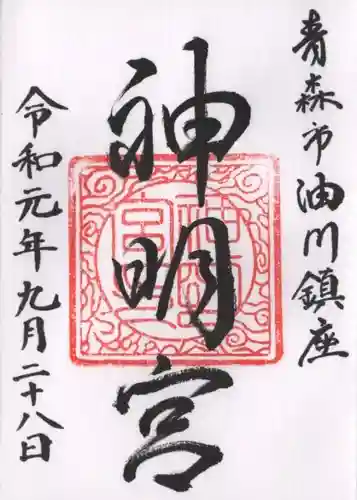 青森市油川鎮座
神明宮
令和元年九月二十八日
神明宮